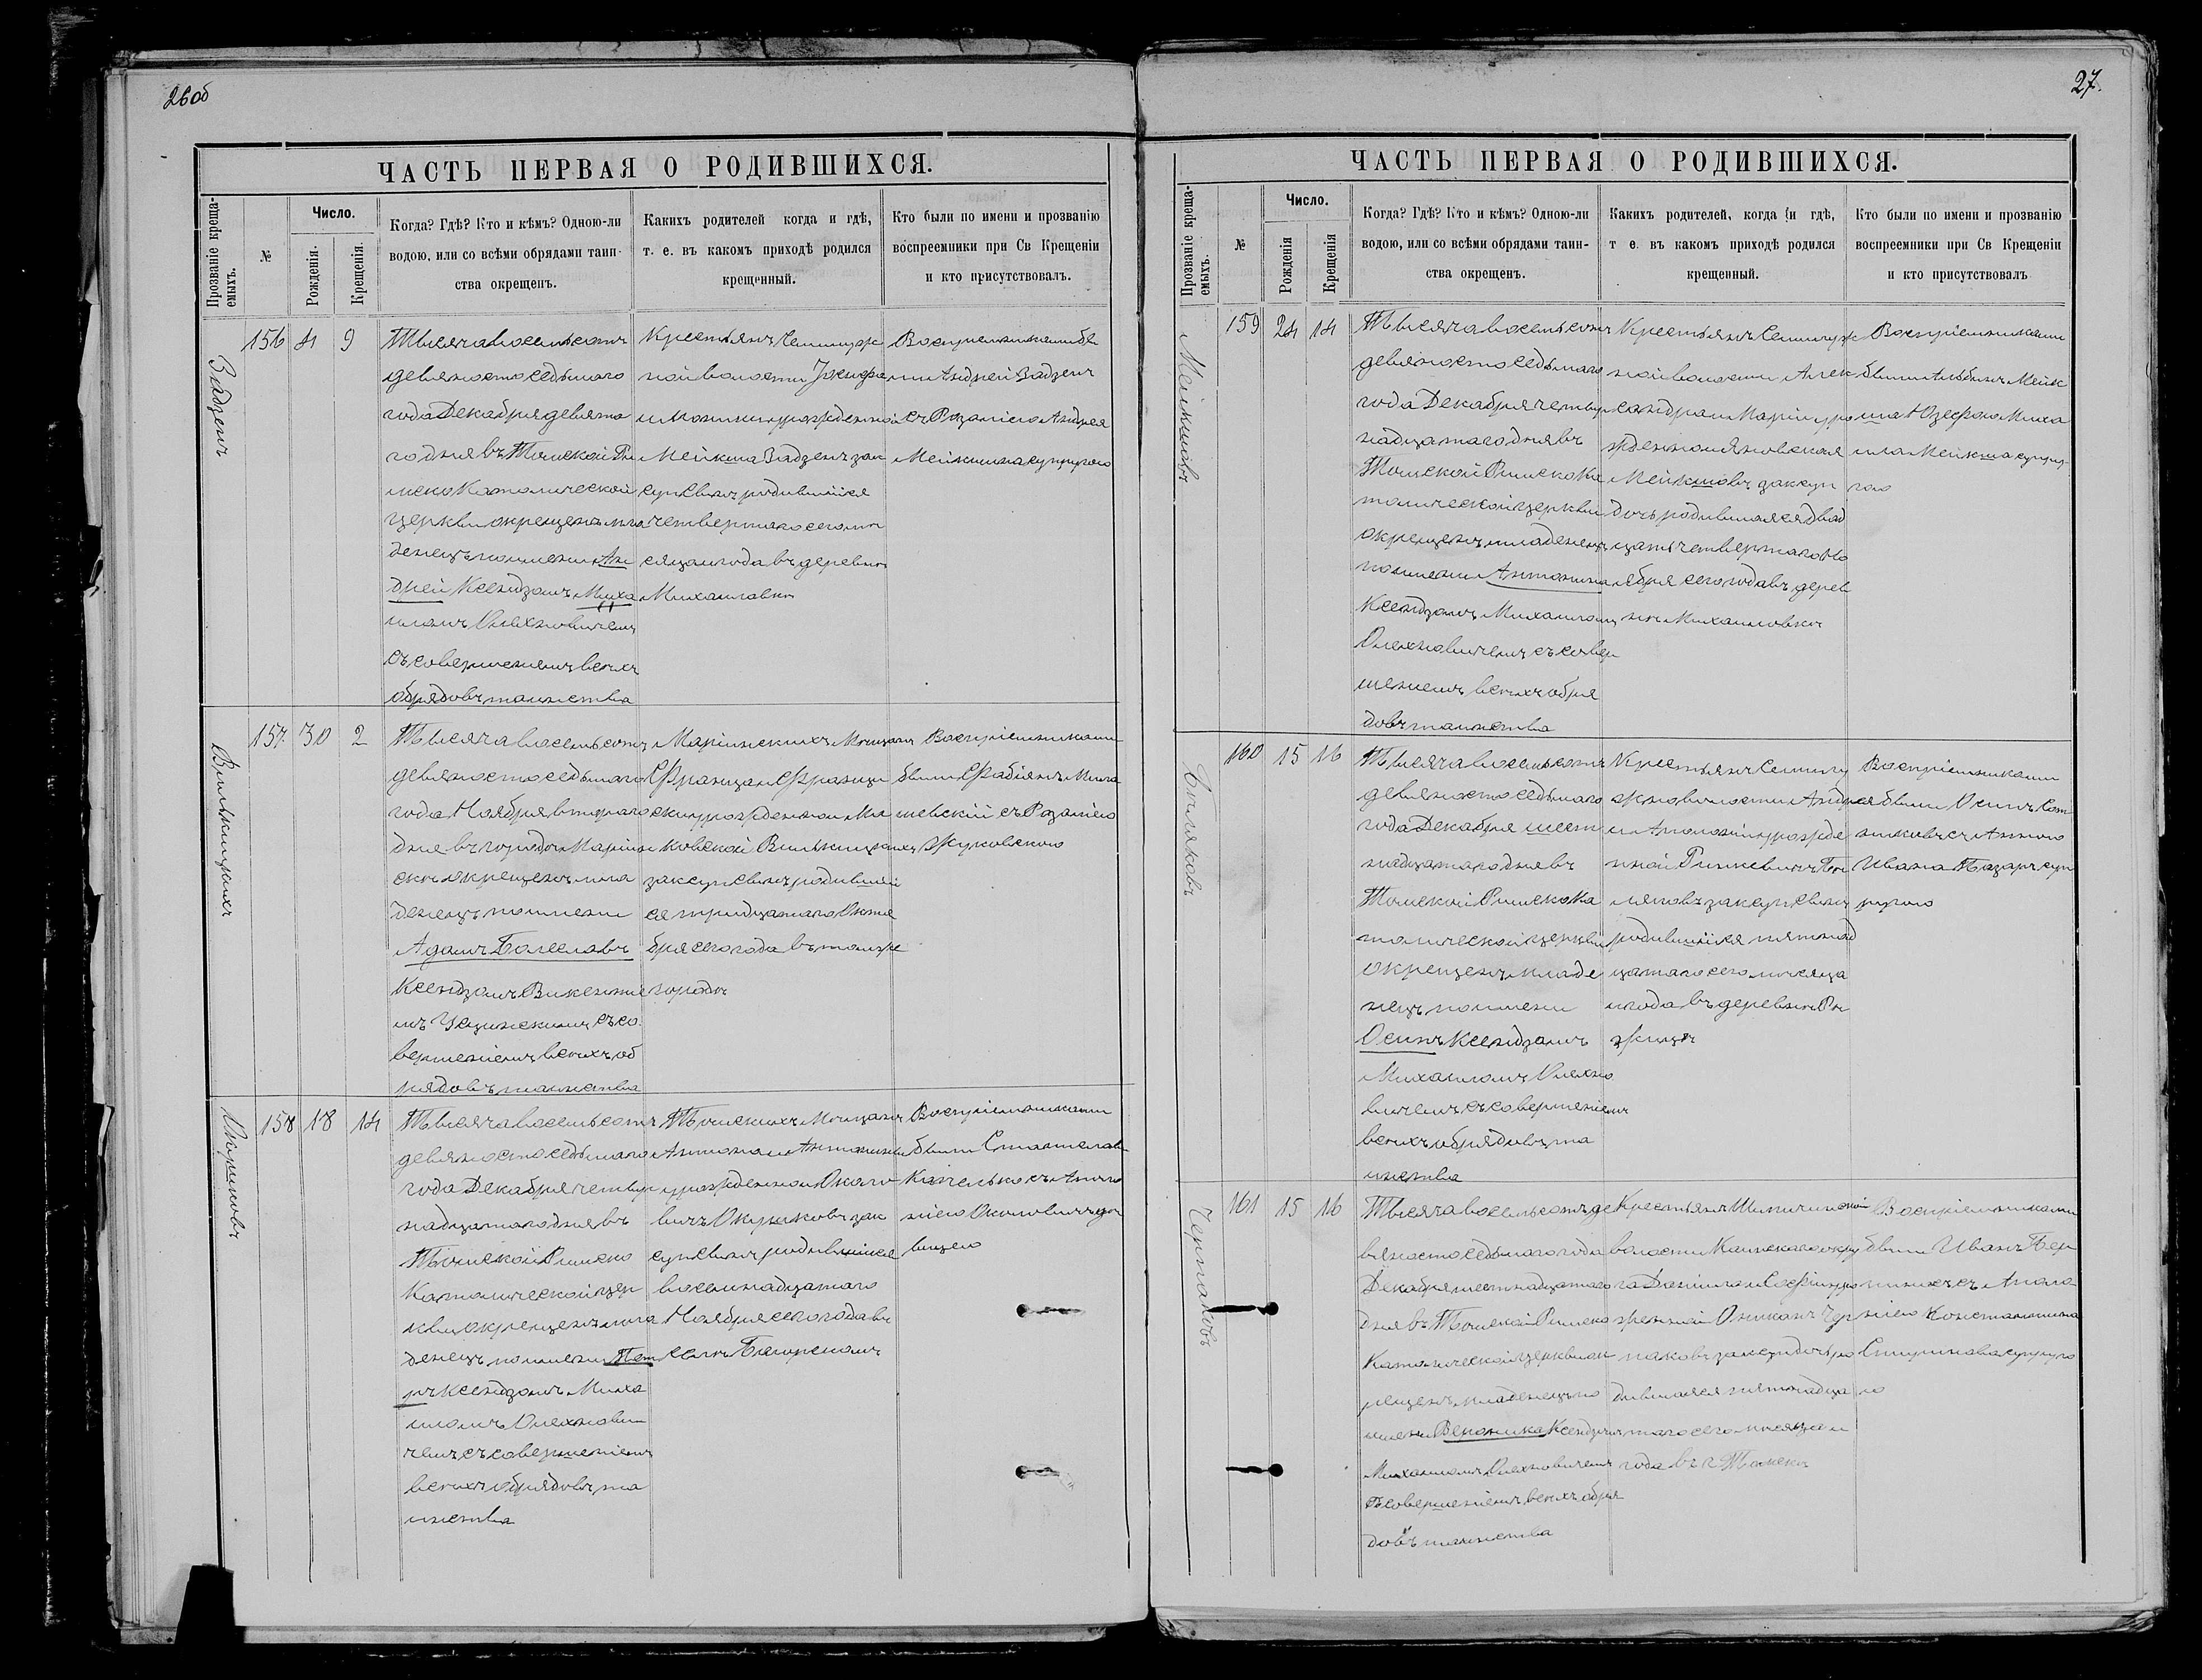 26об
ЧАСТЬ ПЕРВАЯ О РОДИВШИХСЯ.
Прозваніе креща-
емыхъ.
№
Число.
Рожденія.
Крещенія.
Когда? Гдѣ? Кто и кѣмъ? Одною-ли
водою, или со всѣми обрядами таин-
ства окрещенъ.
Какихъ родителей когда и гдѣ,
т. е. въ какомъ приходѣ родился
крещенный.
Кто были по имени и прозванію
воспреемники при Св Крещеніи
и кто присутствовалъ.
156 4 9
Тысяча восемьсотъ
девяносто седьмаго
года Декабря девята
го дня въ Томской Ри
мско Католической
церкви окрещенъ мла
денецъ по имени Ан
дрей Ксендзомъ Миха
иломъ Олехновичемъ
съ совершеніемъ всѣхъ
обрядовъ таинства
Крестьянъ Семилуж
ной волости
рожденной
Мейкша Задзенъ зак
сup сынъ родившійся
четвертаго сего мѣ
сяца и года въ деревнѣ
Михаиловкѣ
Воспріемниками бы
ли Андрей Задзенъ
съ Розаліею Андрея
Мейкшина супругою
Вилькицкихъ
157. 30 2
Тысяча восемьсотъ
девяносто седьмаго
года Ноября втораго
дня въ городѣ Маріин
скѣ окрещенъ мла
денецъ по имени
Адамъ Болеславъ
Ксендзомъ Викентіе
мъ съ со
вершеніемъ всѣхъ об
рядовъ таинства
Маріинскихъ Мѣщанъ
Франца и Франци
ски урожденной Ма
ковской Вилькицкихъ
зак сup сынъ родившій
ся тридцатаго Октя
бря сего года въ томъ же
городѣ
Воспріемниками
были Фабіянъ
съ Розаліею
Жуковскою
158 18 14
Тысяча восемьсотъ
девяносто седьмаго
года Декабря четыр
надцатаго дня въ
Томской Римско
Католической цер
кви окрещенъ мла
денецъ по имени Пет
ръ Ксендзомъ Миха
иломъ Олехнови
чемъ съ совершеніемъ
всѣхъ обрядовъ та
инства
Томскихъ Мѣщанъ
Антона и Антонины
урожденной Около
вичъ зак
сup сынъ родившійся
восемнадцатаго
Ноября сего года въ
селѣ
Воспріемниками
были Станиславъ
съ Анто
ніею Околовичъ дѣ
вицею
27.
ЧАСТЬ ПЕРВАЯ О РОДИВШИХСЯ.
Прозваніе креща-
емыхъ.
№
Число.
Рожденія
Крещенія
Когда? Гдѣ? Кто и кѣмъ? Одною-ли
водою, или со всѣми обрядами таин-
ства окрещенъ.
Какихъ родителей, когда и гдѣ,
т е. въ какомъ приходѣ родился
крещенный.
Кто были по имени и прозванію
воспреемники при Св Крещеніи
и кто присутствовалъ
Мейкшовъ
159 24 14
Тысяча восемьсотъ
девяносто седьмаго
года Декабря четыр
надцатаго дня въ
Томской Римско Ка
толической церкви
окрещенъ младенецъ
по имени Антонина
Ксендзомъ Михаиломъ
Олехновичемъ съ совер
шеніемъ всѣхъ обря
довъ таинства
Крестьянъ Семилуж
ной волости Алек
сандра и Маріи уро
жденной Яновской
Мейкшовъ зак сup
дочь родившаяся двад
цать четвертаго Но
ября сего года въ дерев
нѣ Михаиловкѣ
Воспріемниками
были Альбинъ Мейк
ша Юзефою Миха
ила Мейкша супру
гою
160 15 16
Тысяча восемьсотъ
девяносто седьмаго
года Декабря шест
надцатаго дня въ
Томской Римско Ка
толической церкви
окрещенъ младе
нецъ по имени
Осипъ Ксендзомъ
Михаиломъ Олехно
вичемъ съ совершеніемъ
всѣхъ обрядовъ та
инства
Крестьянъ Семилу
жной волости Андрея
и Аполоніи урожде
нной
зак сup сынъ
родившійся пятнад
цатаго сего мѣсяца
и года въ деревнѣ
Воспріемниками
были Осипъ
съ Анною
Ивана суп
ругою
Чертаковъ
161 15 16
Тысяча восемьсотъ де
вяносто седьмаго года
Декабря шестнадцатаго
дня въ Томской Римско
Католической церкви ок
рещенъ младенецъ по
имени Вероника Ксендзомъ
Михаиломъ Олехновичемъ
съ совершеніемъ всѣхъ обря
довъ таинства
Крестьянъ
волости Каинскаго окру
га Даніила и Софіи уро
жденной
зак сup дочь ро
дившаяся пятнадца
таго сего мѣсяца и
года въ г Томскѣ
Воспріемниками
были Иванъ
съ Аполо
ніею Константина
супруго
ю